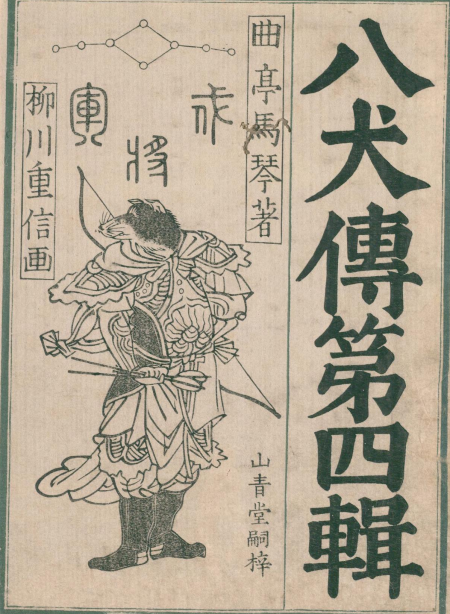 八犬傳第四輯
曲亭馬琴著
戌
将
軍
柳川重信画
山青堂嗣梓